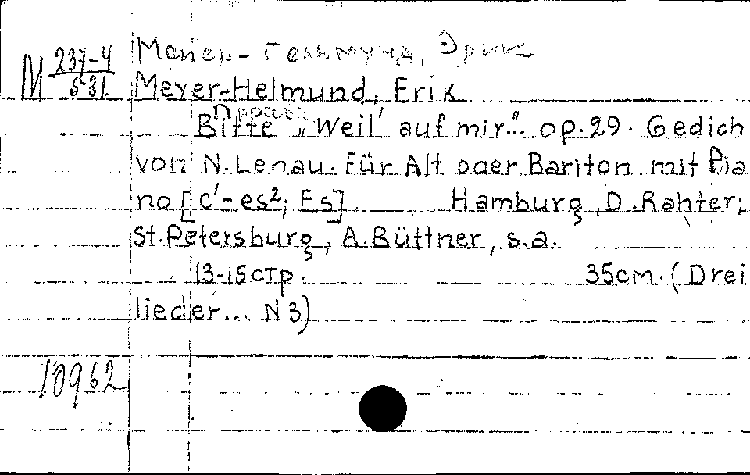 М 237-4
531
Мейер-Гельмунд, Эрик
Meyer-Helmund, Erik
Bitte „Weil' auf mir“. op.29. Gedich
von N. Lenau. Für Alt oder Bariton mit Pia
no [c'-es²; Es]. Hamburg, D. Rahter;
St. Petersburg, A. Büttner, s.a.
13-15 стр. 35cm. (Drei
lieder... N 3)
10962